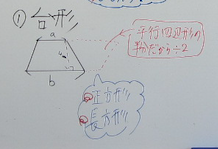 ① 台形
a
b
平行四辺形の
半分だから÷2
正方形
長方形